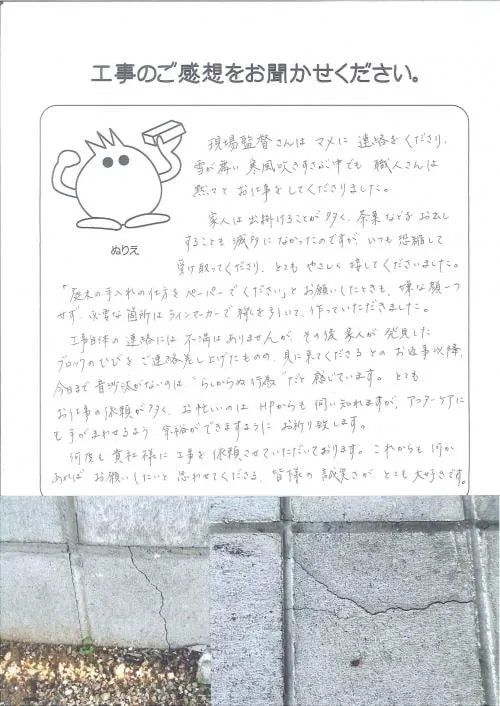 工事のご感想をお聞かせください。
現場監督さんは マメに 連絡をくださり、
雪が舞い 寒風吹きすさぶ中でも 職人さんは
黙々と お仕事をしてくださりました。
家人は出掛けることが多く、茶菓などをお出し
することも 滅多になかったのですが、いつも恐縮して
受け取ってくださり、とても やさしく 接してくださいました。
ぬりえ
「庭木の手入れの仕方をペーパーでください」とお願いしたときも、嫌な顔一つ
せず、必要な箇所はラインマーカーで線を引いて、作っていただきました。
工事自体の連絡には 不満はありませんが、その後 家人が 発見した
ブロックのひびを ご連絡差し上げたものの、見に来てくださる との お返事以降、
今日まで 音沙汰がないのは "らしからぬ行為" だと 感じています。とても
お仕事の依頼が多く、お忙しいのは HPからも 伺い知れますが、アフターケアに
も手がまわせるよう 余裕ができますように お祈り致します。
何度も 貴社様に 工事を 依頼させていただいております。これからも 何か
あれば お願いしたいと 思わせてくださる、皆様の 誠実さが、とても 大好きです。